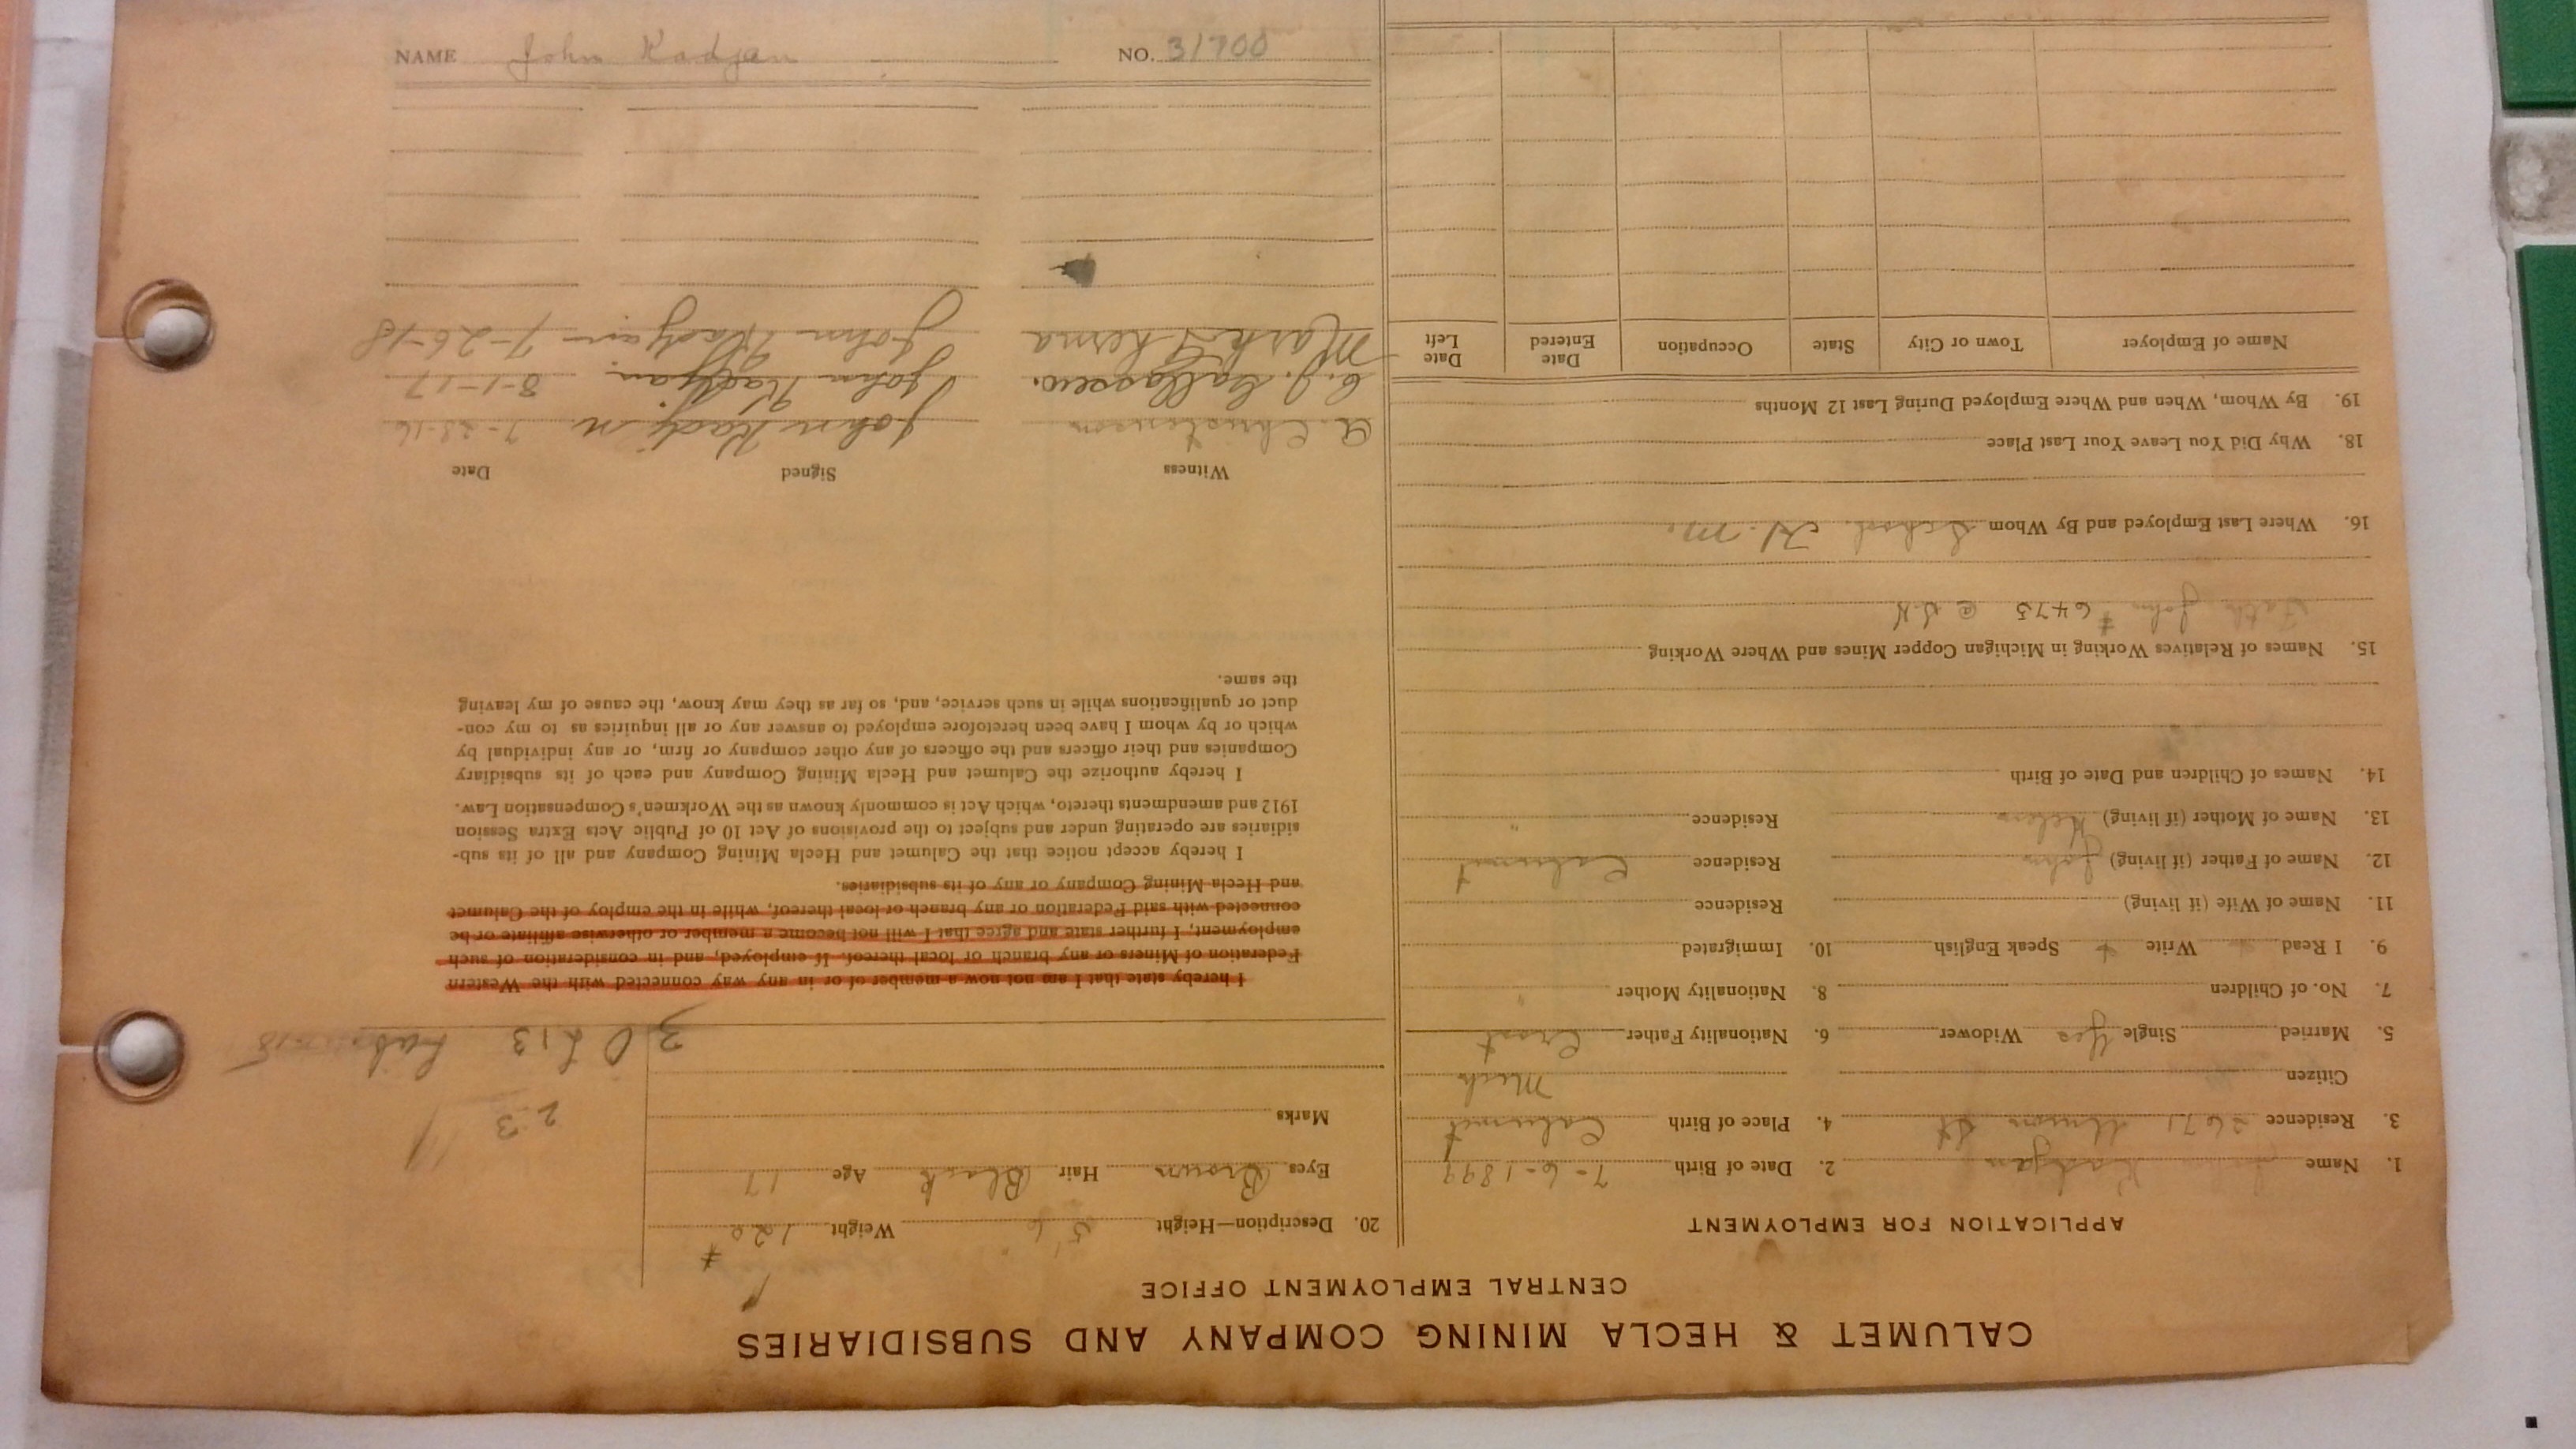 CALUMET & HECLA MINING COMPANY AND SUBSIDIARIES
CENTRAL EMPLOYMENT OFFICE
APPLICATION FOR EMPLOYMENT
1. Name John Kadjan 2. Date of Birth 7-6-1899
3. Residence 2671 Union St 4. Place of Birth Calumet
Citizen Mich
5. Married Single Yes Widower 6. Nationality Father Croat
7. No. of Children 8. Nationality Mother "
9. I Read Write Speak English 10. Immigrated
11. Name of Wife (if living) Residence
12. Name of Father (if living) John Residence Calumet
13. Name of Mother (if living) Helen Residence "
14. Names of Children and Date of Birth
15. Names of Relatives Working in Michigan Copper Mines and Where Working
John # 6473
16. Where Last Employed and By Whom School
18. Why Did You Leave Your Last Place
19. By Whom, When and Where Employed During Last 12 Months
Name of Employer Town or City State Occupation Date Entered Date Left
20. Description—Height 5' 6" Weight 120 #
Eyes Brown Hair Black Age 17
Marks
23
I hereby state that I am not now a member of or in any way connected with the Western
Federation of Miners or any branch or local thereof. If employed, and in consideration of such
employment, I further state and agree that I will not become a member or otherwise affiliate or be
connected with said Federation or any branch or local thereof, while in the employ of the Calumet
and Hecla Mining Company or any of its subsidiaries.
I hereby accept notice that the Calumet and Hecla Mining Company and all of its sub-
sidiaries are operating under and subject to the provisions of Act 10 of Public Acts Extra Session
1912 and amendments thereto, which Act is commonly known as the Workmen's Compensation Law.
I hereby authorize the Calumet and Hecla Mining Company and each of its subsidiary
Companies and their officers and the officers of any other company or firm, or any individual by
which or by whom I have been heretofore employed to answer any or all inquiries as to my con-
duct or qualifications while in such service, and, so far as they may know, the cause of my leaving
the same.
Witness Signed Date
John Kadjan 7-28-16
John Kadjan 8-1-17
John Kadjan 7-26-18
NAME John Kadjan NO. 31700